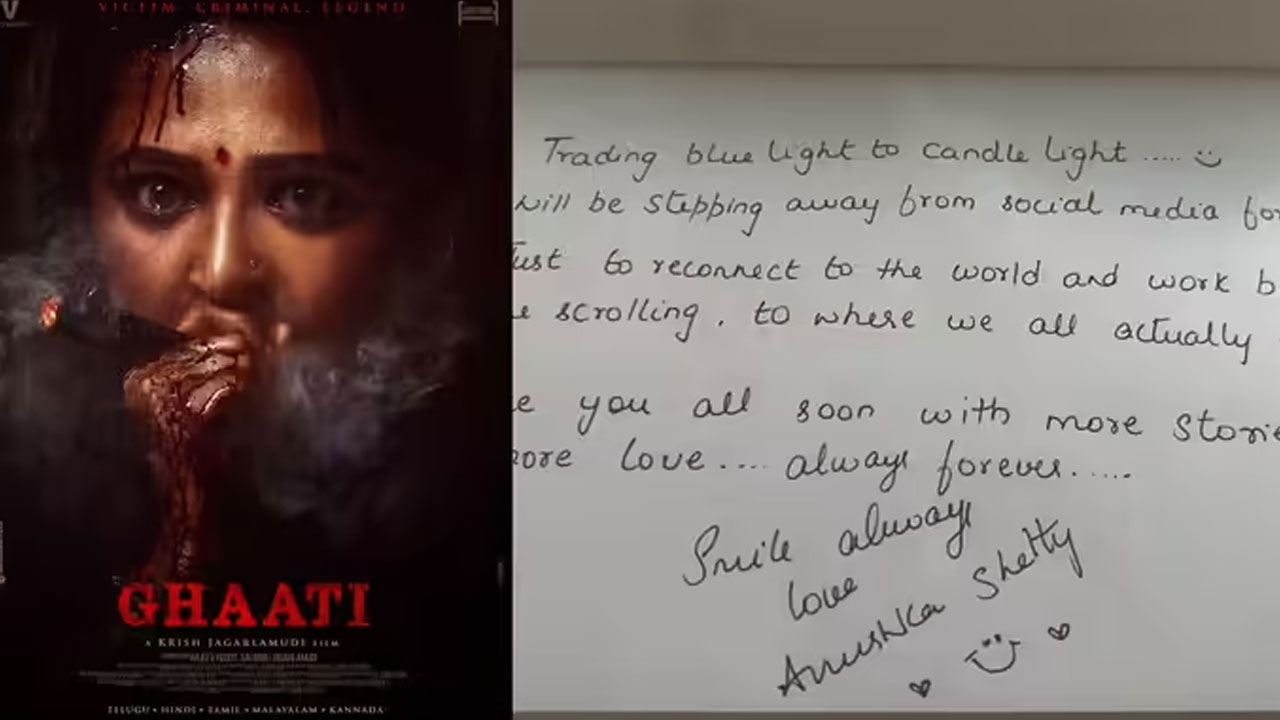 VICTIM. CRIMINAL. LEGEND
GHAATI
A KRISH JAGARLAMUDI FILM
TELUGU • HINDI • TAMIL • MALAYALAM • KANNADA
Trading blue light to candle light ..... :)
will be stepping away from social media for
Just to reconnect to the world and work b
scrolling, to where we all actually
you all soon with more storie
more love.... always forever.....
Smile always
love
Anushka Shetty